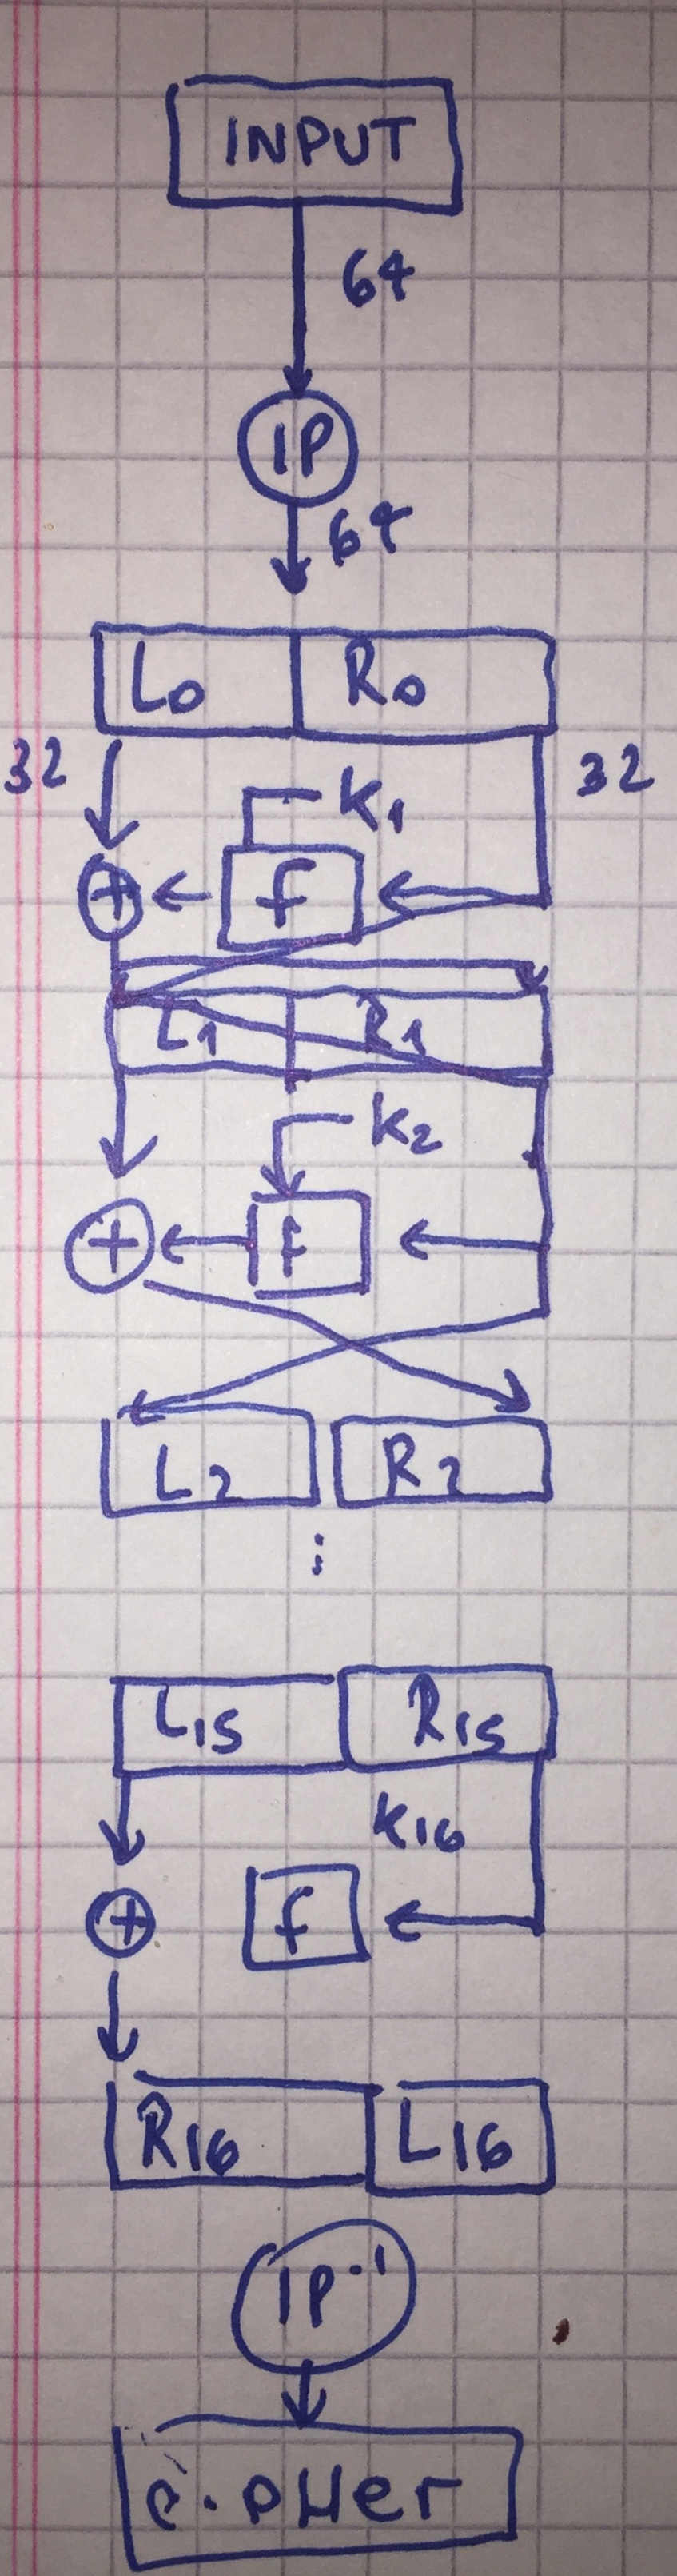 INPUT
64
IP
64
L0 R0
32 32
K1
+ f
L1 R1
K2
+ f
L2 R2
:
L15 R15
K16
+ f
R16 L16
IP-1